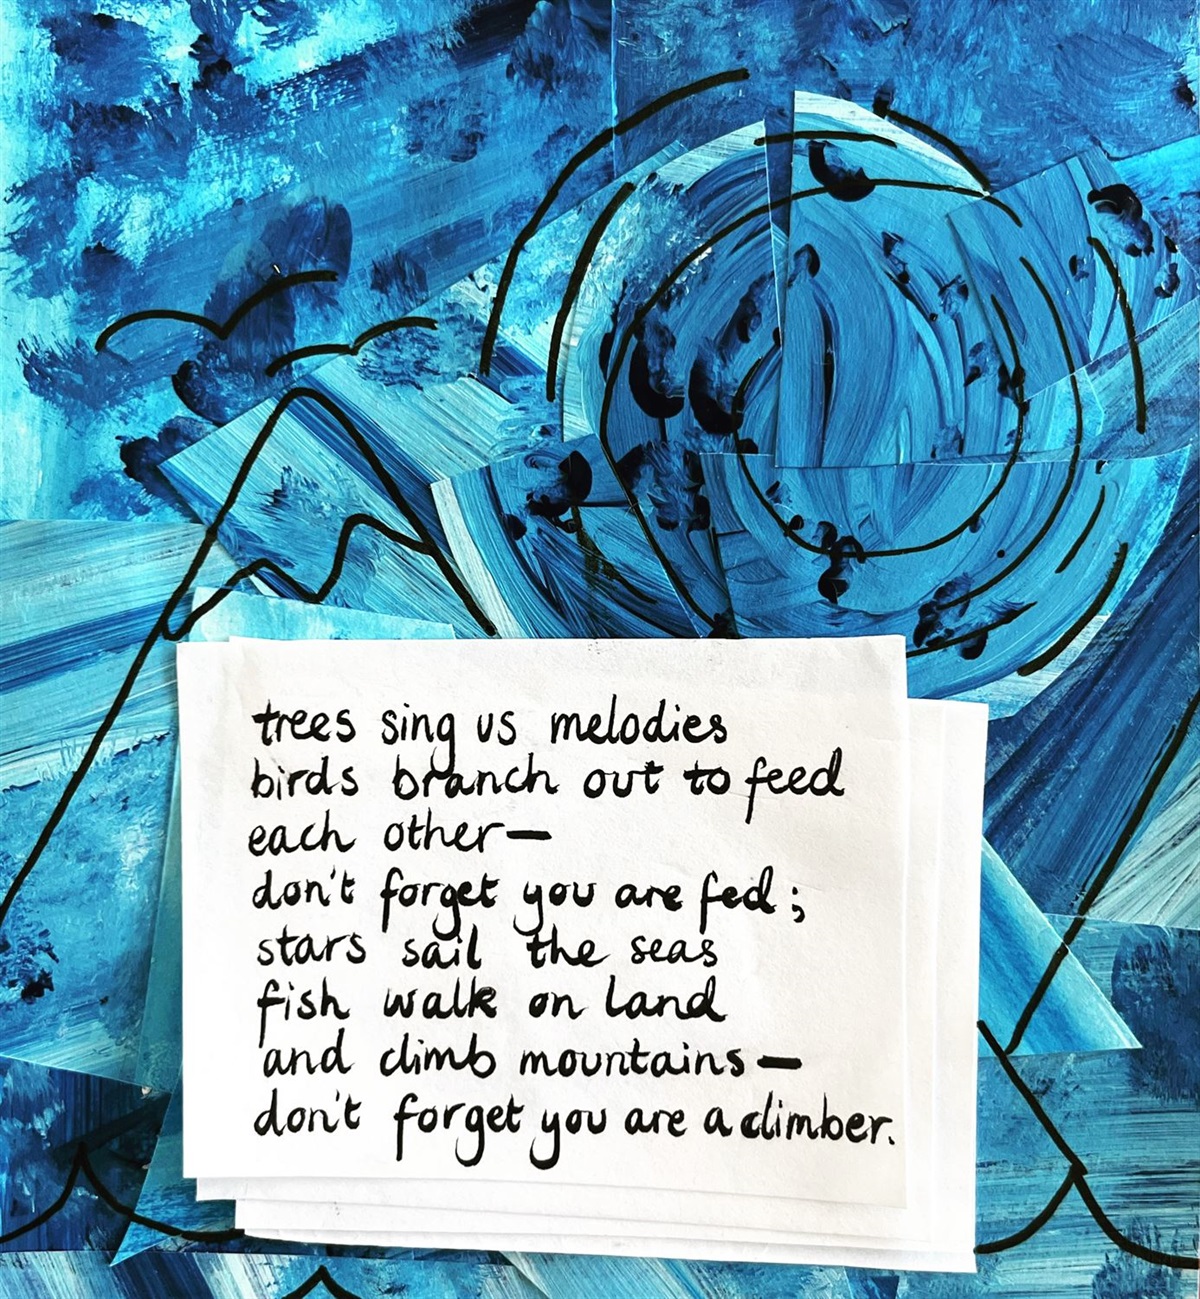 trees sing us melodies
birds branch out to feed
each other—
don't forget you are fed;
stars sail the seas
fish walk on land
and climb mountains—
don't forget you are a climber.